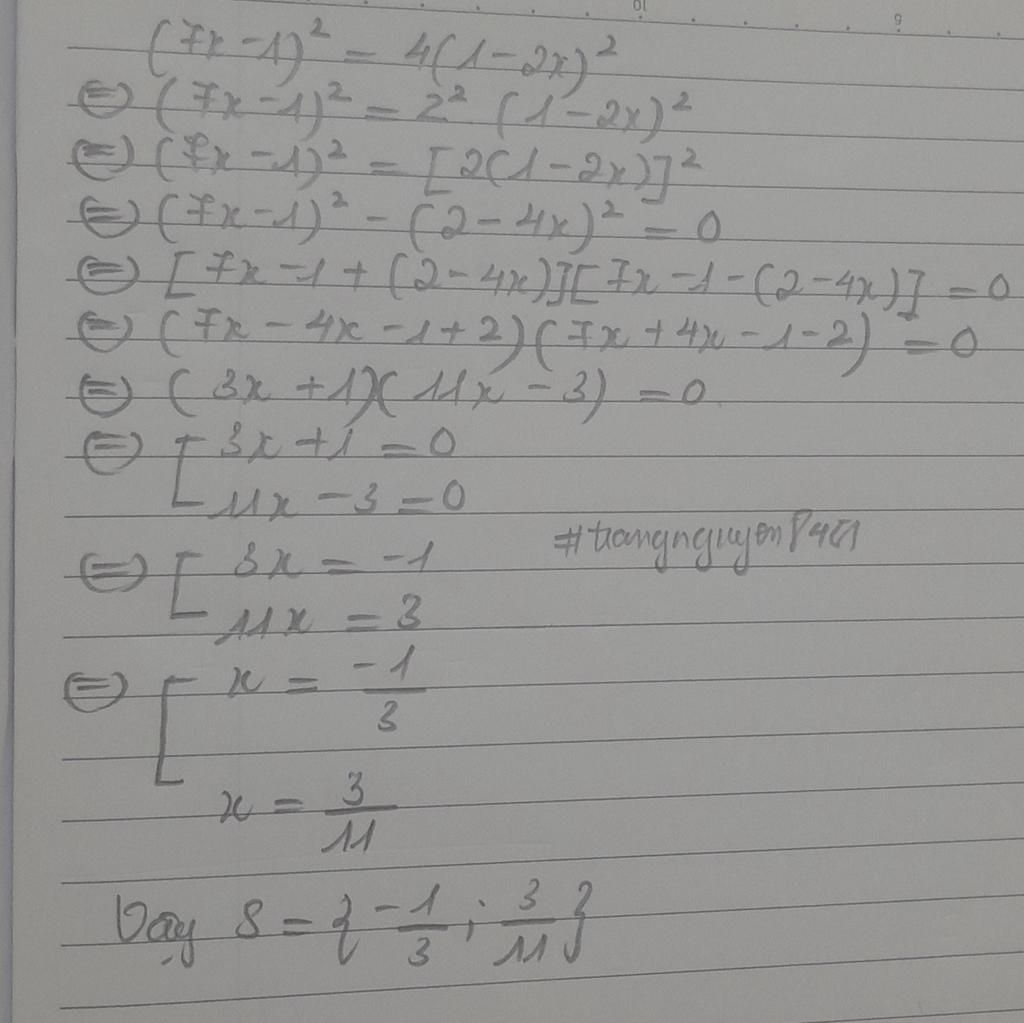 (7x-1)² = 4(1-2x)²
⇔ (7x-1)² = 2² (1-2x)²
⇔ (7x-1)² = [2(1-2x)]²
⇔ (7x-1)² - (2-4x)² = 0
⇔ [7x-1+(2-4x)][7x-1-(2-4x)] = 0
⇔ (7x-4x-1+2)(7x+4x-1-2) = 0
⇔ (3x+1)(11x-3) = 0
⇔ [ 3x+1=0
11x-3=0
⇔ [ 3x = -1
11x = 3
⇔ [ x = -1/3
x = 3/11
Vậy S = {-1/3; 3/11}